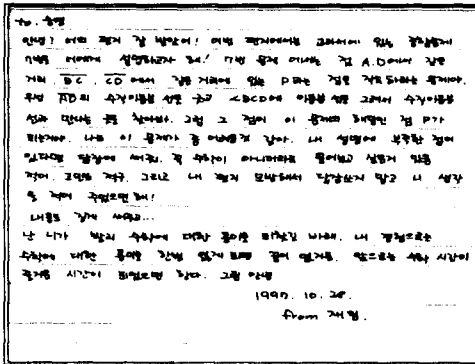 안녕! 어제 편지 잘 받았어! 이번 편지에서는 교과서에 있는 문제중에
7번을 너에게 설명하고자 해! 7번 문제 에서는 점 A, D에서 같은
거리 BC, CD 에서 같은 거리에 있는 P라는 점을 작도하라는 문제야.
우선 AD의 수직이등분선을 긋고 <BCD의 이등분선을 그려서 수직이등분
선과 만나는 점을 찾아봐. 그럼 그 점이 이 문제의 점 P가
되는거야. 나는 이 문제가 좀 어려운것 같아. 내 설명에 부족한 점이
있다면 답장에 써줘. 또 수학이 아니더라도 물어보고 싶은게 있음
적어. 고민도 적구. 그리고 내 편지 답장쓰지 말고 니 생각
을 적어 주었으면 해!
내용도 길게 써줘...
난 니가 빨리 수학에 대한 흥미를 되찾길 바래. 내 경험으로는
수학에 대한 흥미를 한번 잃게 되면 끝이 없거든. 앞으로는 수학 시간이
즐거운 시간이 되었으면 좋겠다. 그럼 안녕
1997. 10. 28.
from 재